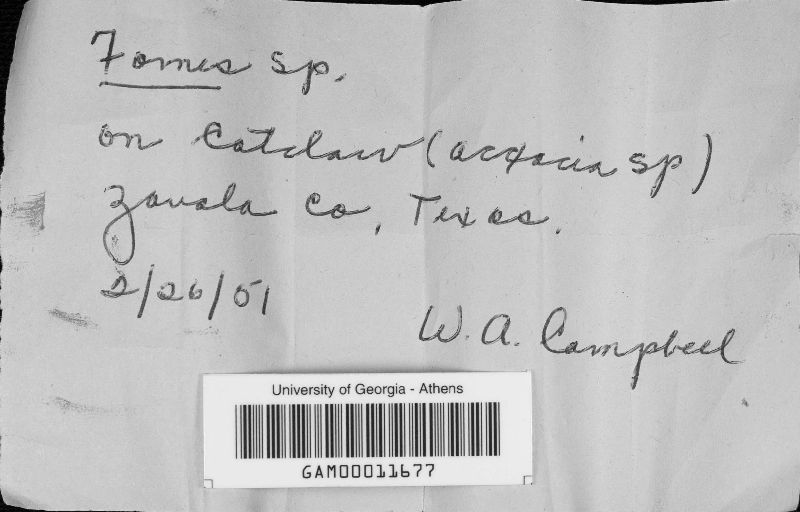 Fomes sp.
on Catclaw (acacia sp)
Zavala Co, Texas.
2/26/51
W. A. Campbell
University of Georgia - Athens
GAM00011677